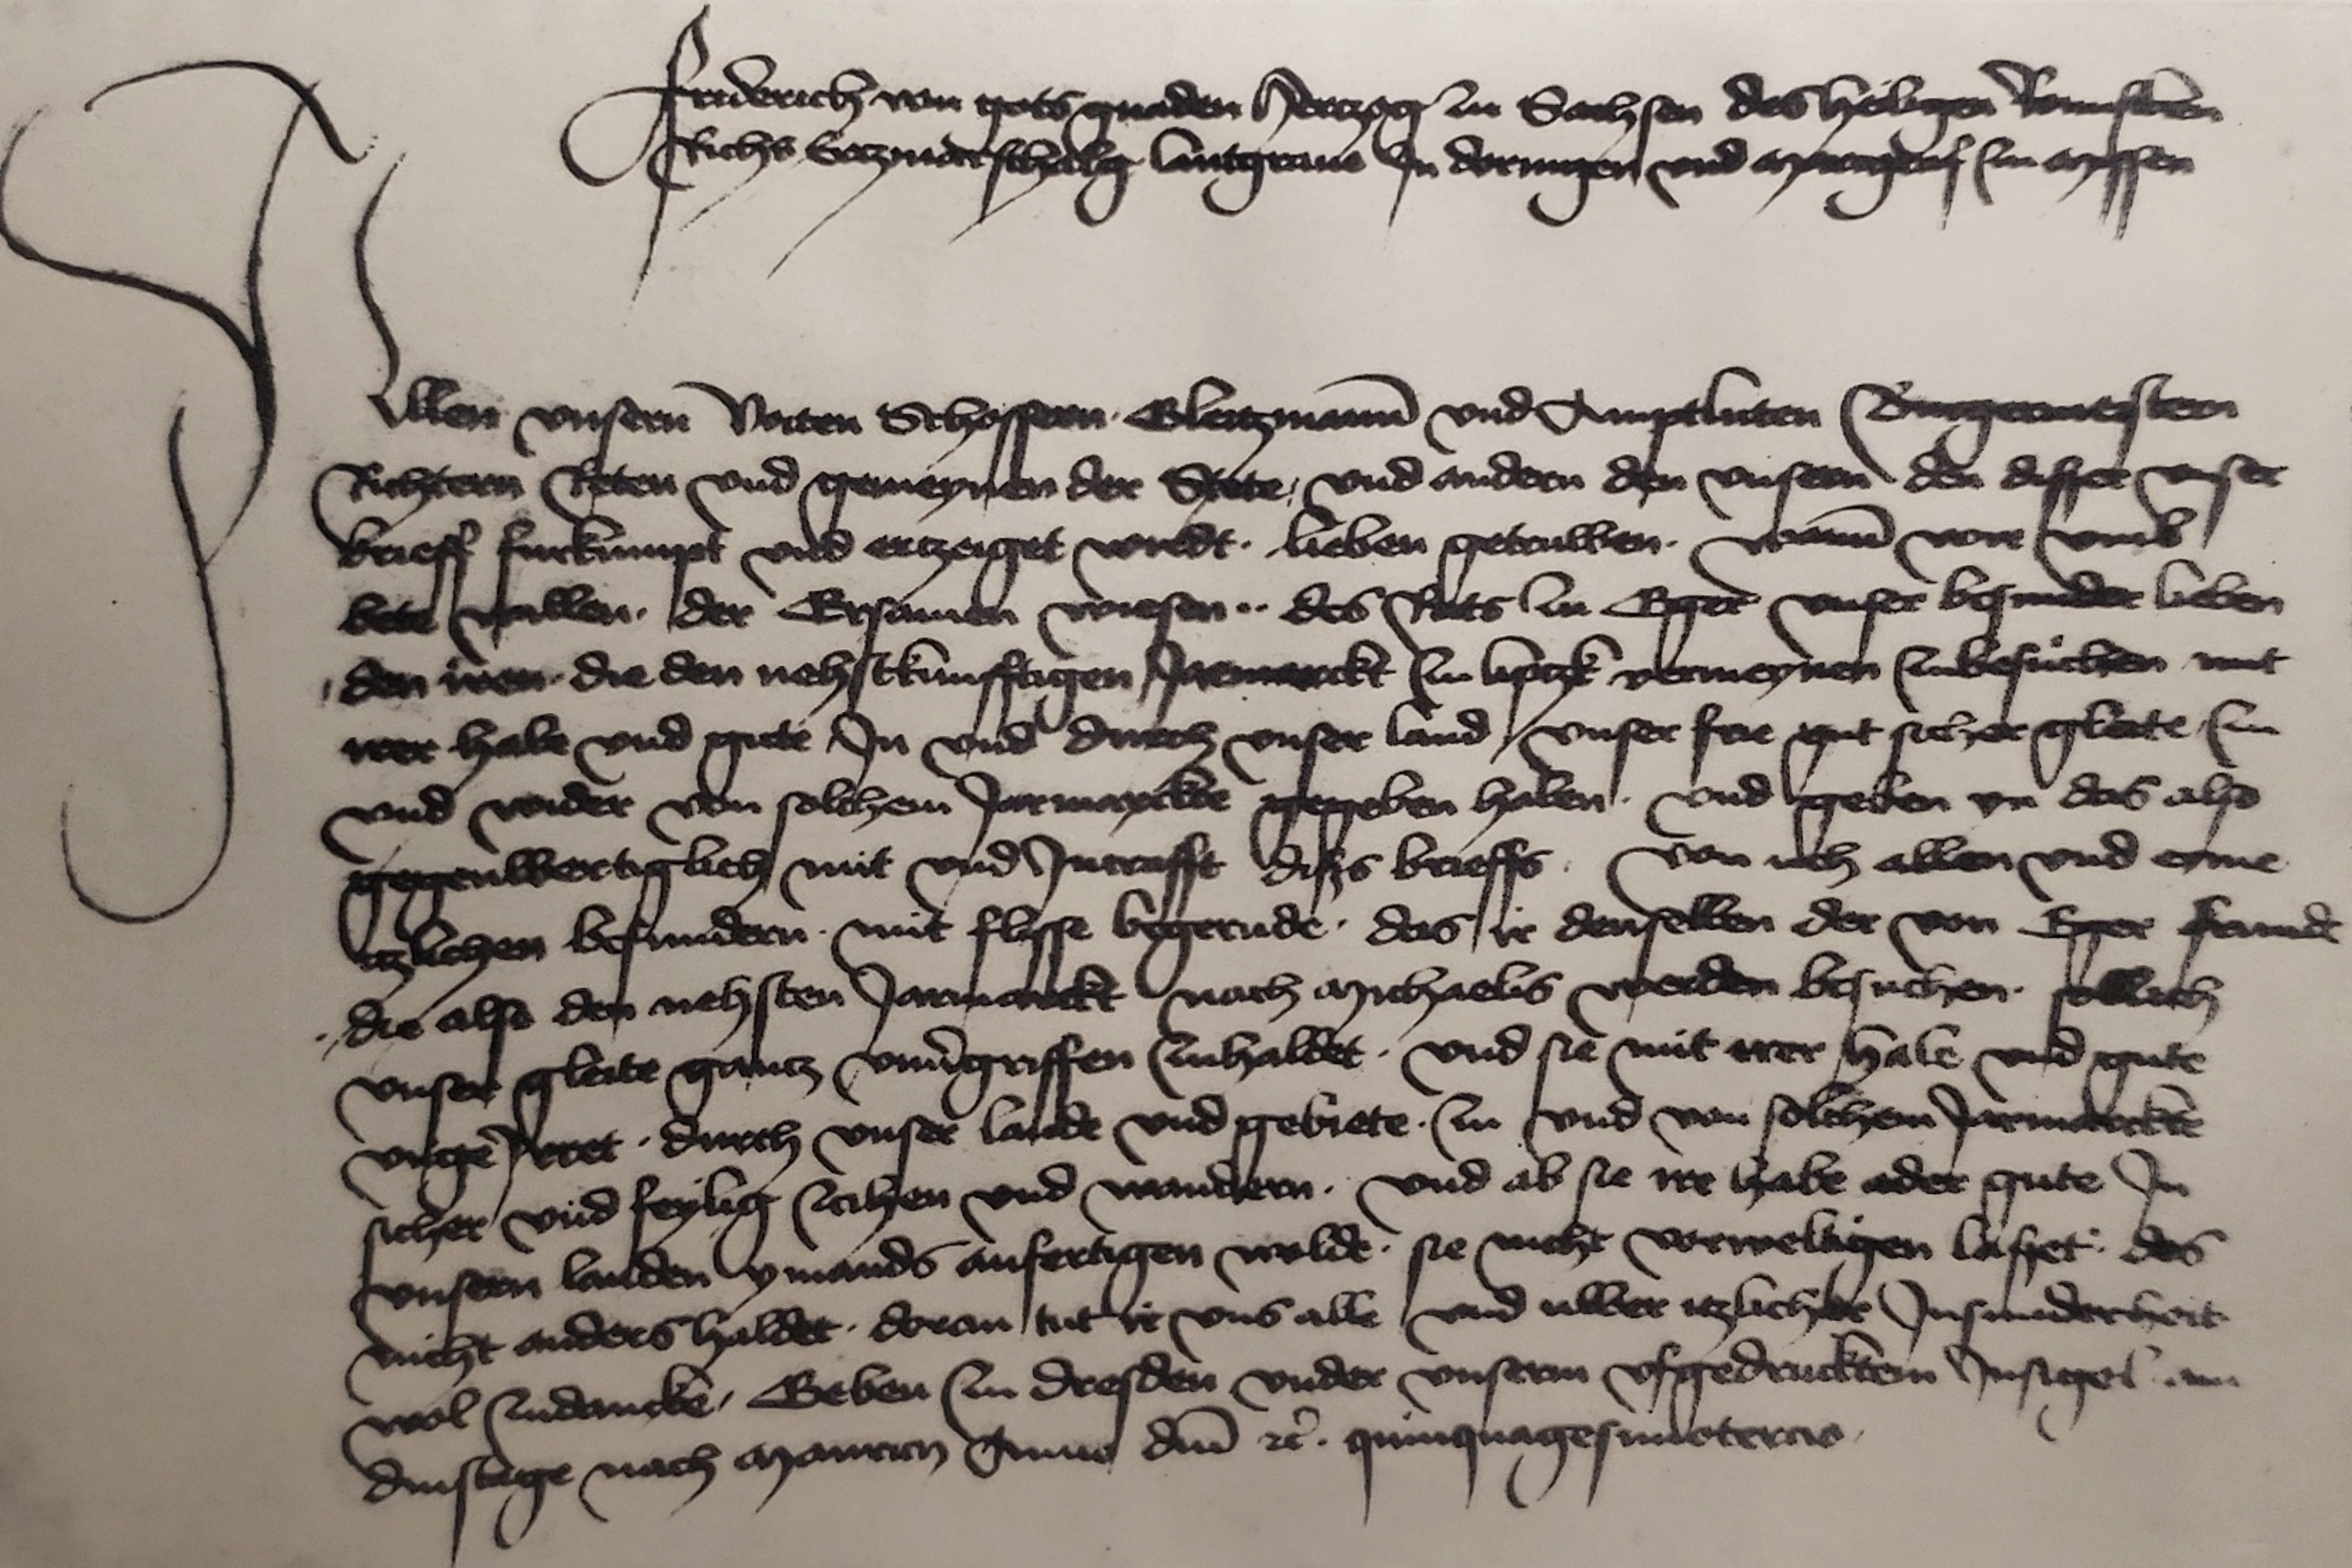 Friderich von gots gnaden Herczog zu Sachsen des heiligen Romischen
Richs Erczmarschalg lantgraue In doringen vnd Marcgraf zu Myssen
Allen vnsern Voiten Schossern Gleitzmann vnd Amptluten Burgermeistern
Richtern Reten vnd gemeynen der Stete vnd andern den vnsern den disser vnser
brieff furkumpt vnd erczeiget wirdt. lieben getruwen. wann wir vmb
bete willen. der Ersamen wiesen.. des Rats zu Eger vnser besunder lieben
den iren. die den nehstkunfftigen Jarmarckt zu lipczk vermeynen zubesuchen mit
irer habe vnd gute In vnd durch vnser land vnser frie gut sicher gleite zu
vnd wider von solchem Jarmarckte gegeben haben. vnd geben yn das also
gegenwertiglich mit vnd Incrafft diß brieffs. von uch allen vnd eyme
itzlichen besundern. mit flisse begernde. das ir denselben der von Eger frunde
die also den nehsten Jarmarckt nach Michaelis werden besuchen. sollich
vnser gleite gantz vnuergriffen zuhaldet. vnd sie mit irer habe vnd gute
vngeirret. durch vnser lande vnd gebiete. zu vnd von solchem Jarmarckte
sicher vnd feylig zcihen vnd wandern. vnd ab sie ire habe ader gute In
vnsern landen ymands anfertigen wolde. sie nicht vorweldigen lasset. des
nicht anders haldet. doran tut ir vns alle vnd uwer itzlicher Insunderheit
wol zudancke. Geben zu Dresden vnder vnserm vfgedrucktem Insigel am
dinstage nach Mauricy Anno dm̄ rc̄. quinquagesimotercio.